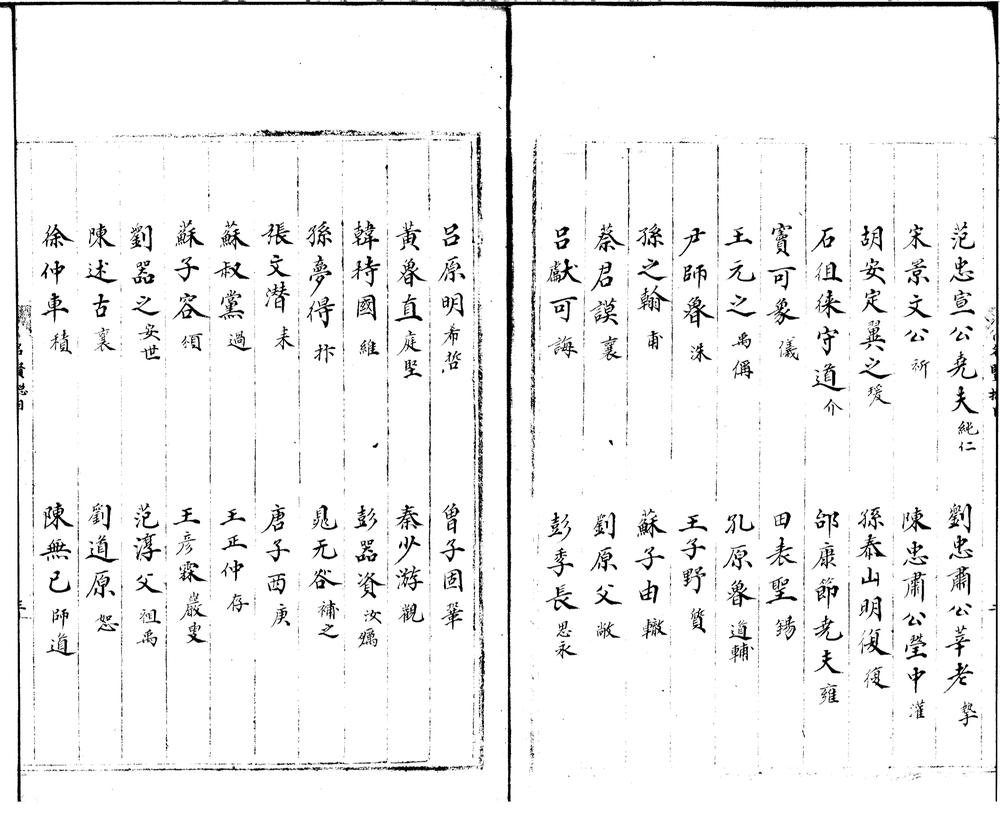 范忠宣公堯夫純仁 劉忠肅公莘老摯
宋景文公祁 陳忠肅公瑩中瓘
胡安定翼之瑗 孫泰山明復復
石徂徠守道介 邵康節堯夫雍
竇可象儀 田表聖錫
王元之禹偁 孔原魯道輔
尹師魯洙 王子野質
孫之翰甫 蘇子由轍
蔡君謨襄 劉原父敞
呂獻可誨 彭季長思永
呂原明希哲 曾子固鞏
黃魯直庭堅 秦少游觀
韓持國維 彭器資汝礪
孫夢得抃 晁无咎補之
張文潛耒 唐子西庚
蘇叔黨過 王正仲存
蘇子容頌 王彥霖巖叟
劉器之安世 范淳父祖禹
陳述古襄 劉道原恕
徐仲車積 陳無已師道